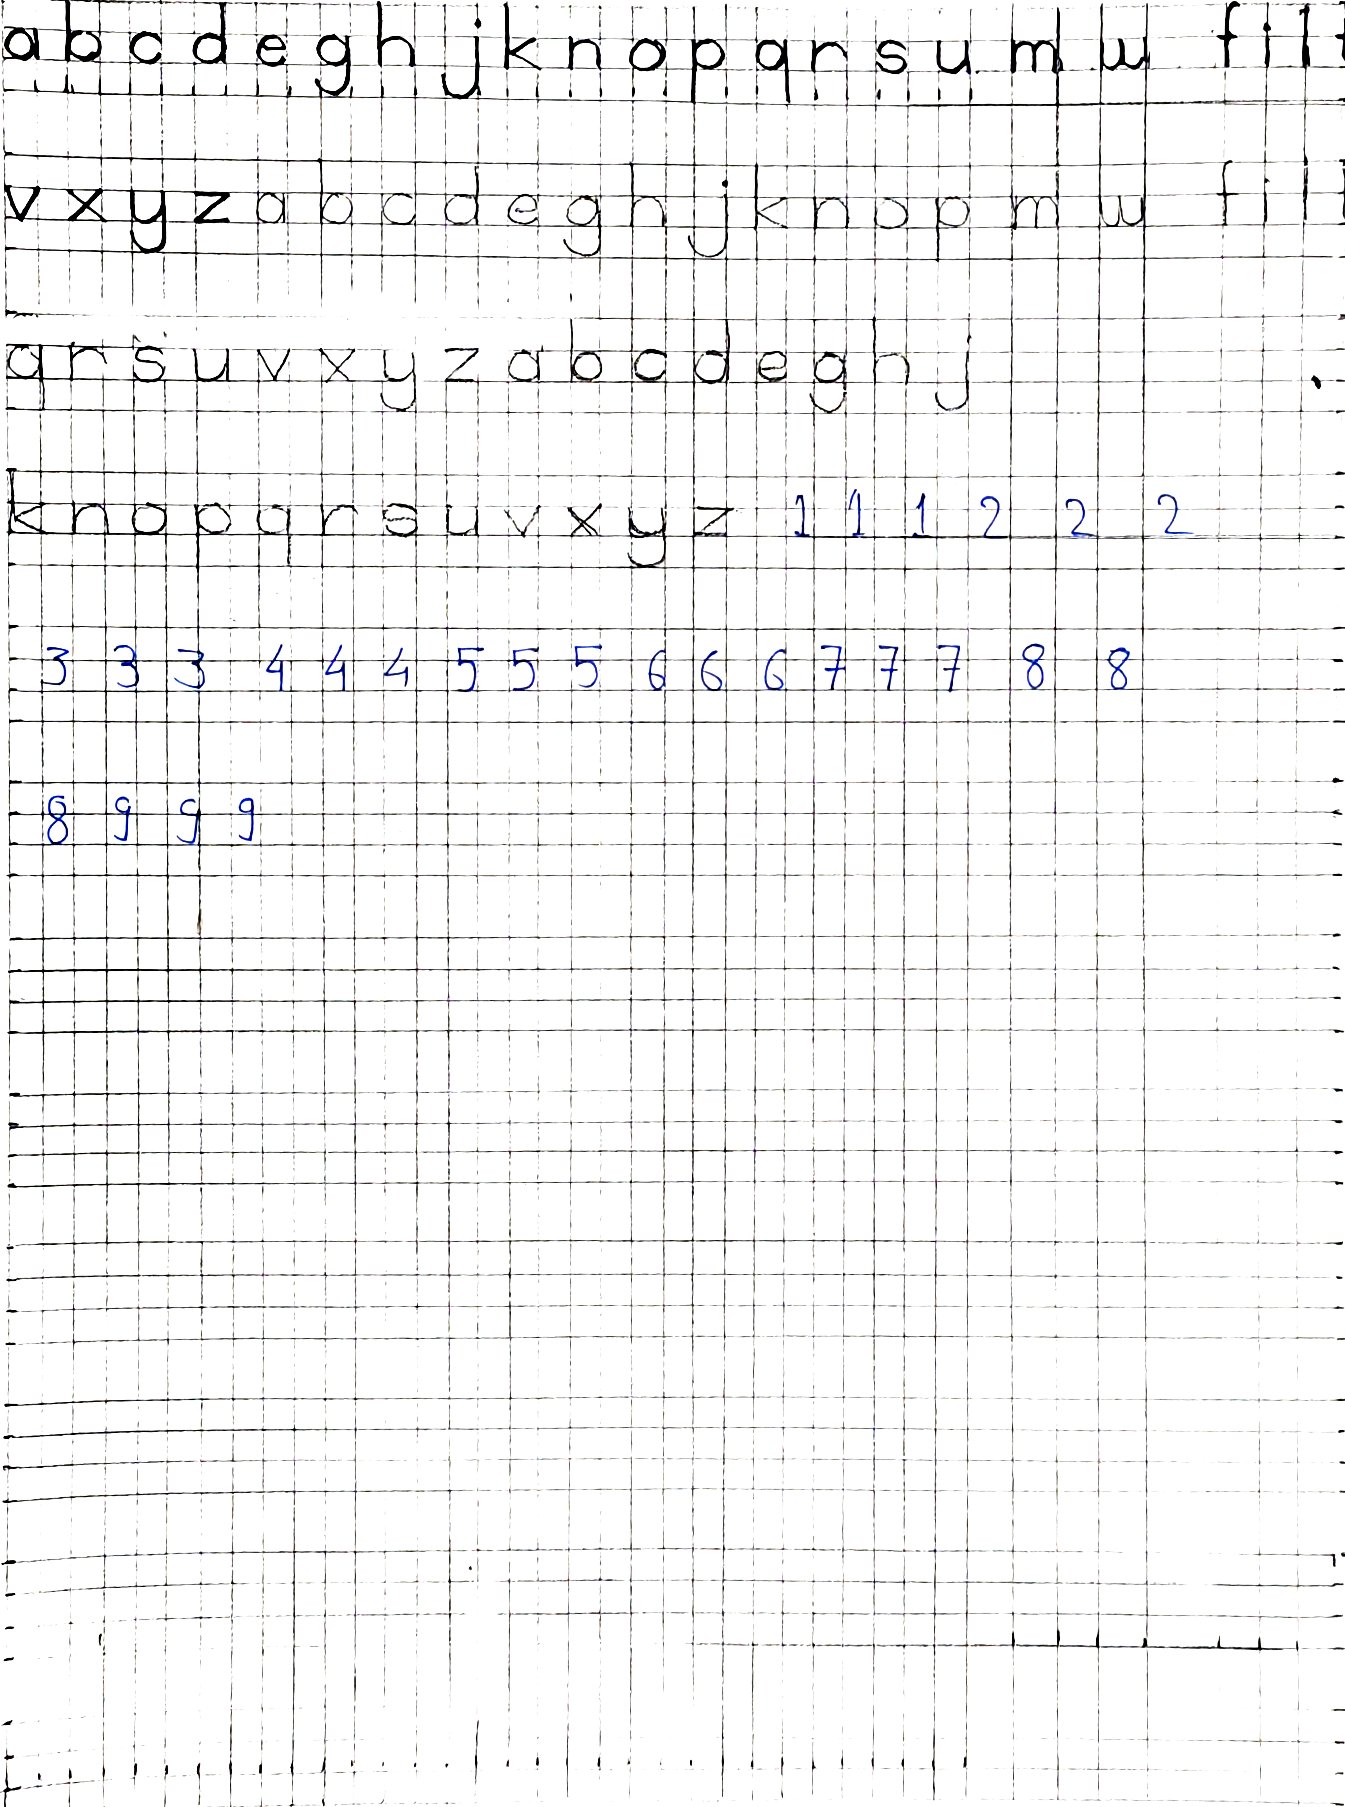 a b c d e g h j k n o p q r s u m w f i l t
v x y z a b c d e g h j k n o p m w f i l t
q r s u v x y z a b c d e g h j
k n o p q r s u v x y z 1 1 1 2 2 2
3 3 3 4 4 4 5 5 5 6 6 6 7 7 7 8 8
8 9 9 9